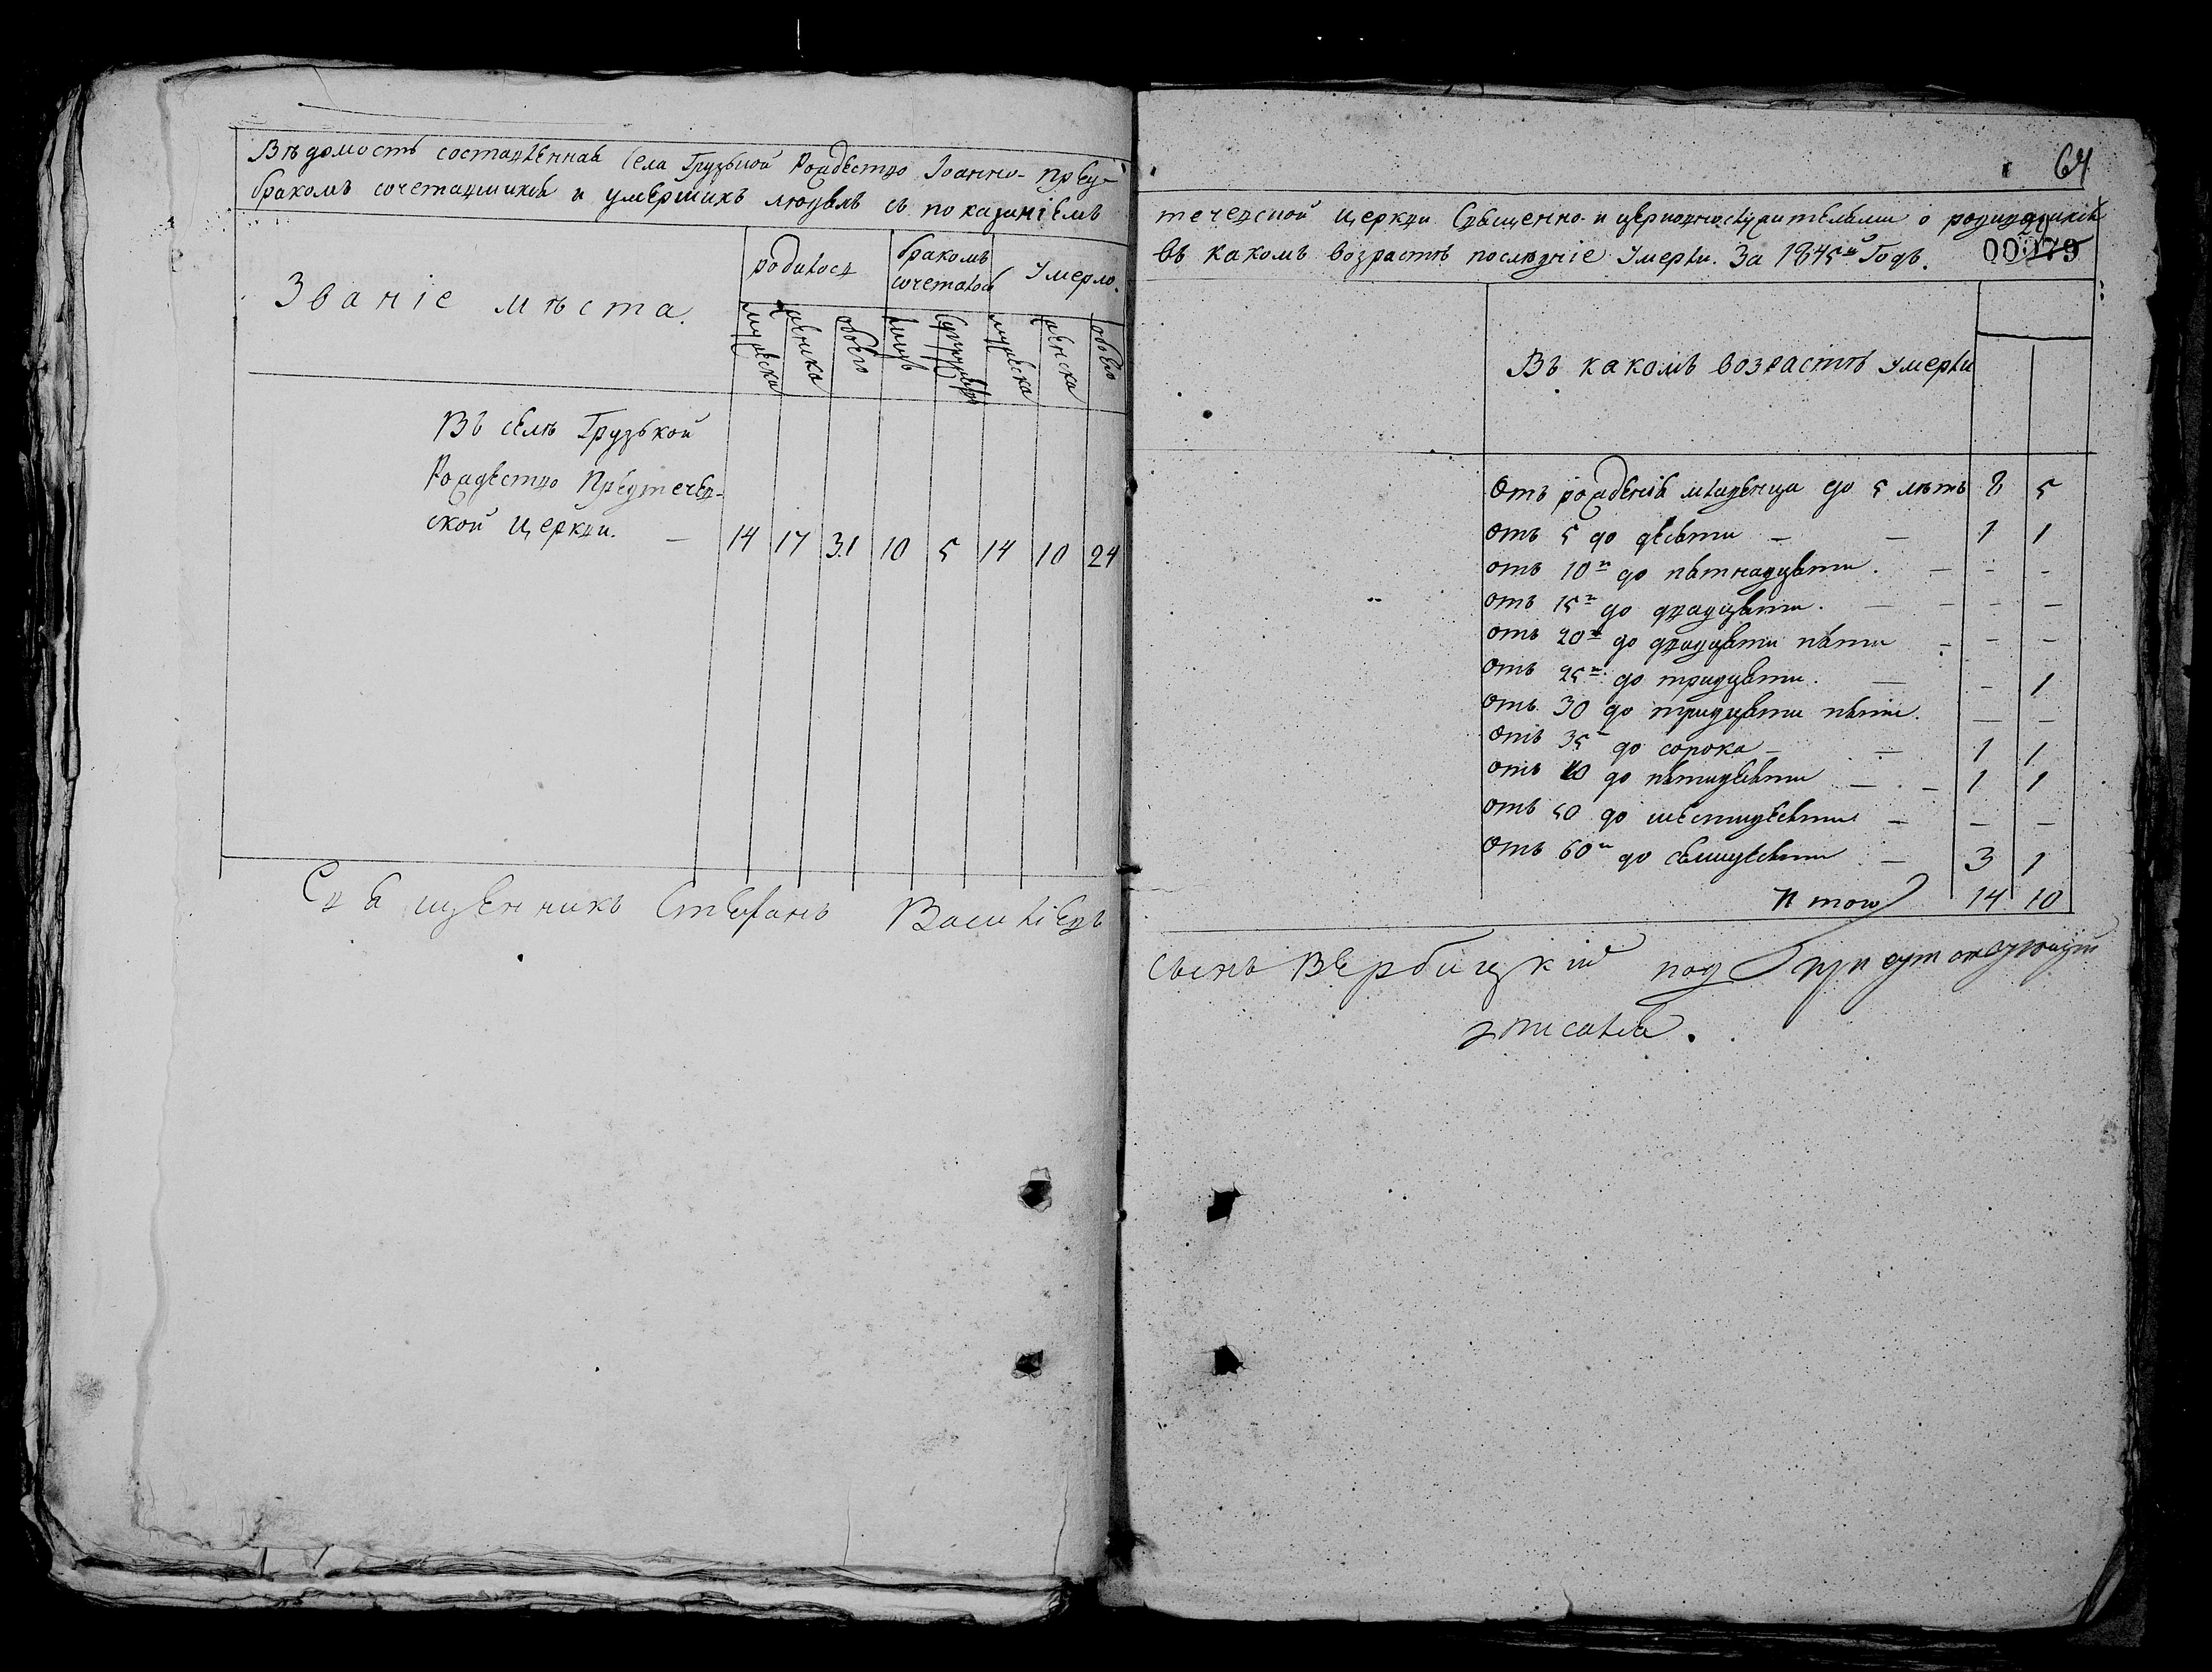 Вѣдомость составленная Села Грузькой Рождество Іоанно-Пред-
бракомъ сочетавшихся и умершихъ людяхъ съ показаніемъ
Званіе мѣста.
родилось
бракомъ сочеталось
Умерло.
мужеска
женска
обоего
лицъ
Супружествъ
мужеска
женска
обоего
Въ селѣ Грузькой
Рождество Предтечев-
ской Церкви. — 14 17 31 10 5 14 10 24
Священникъ Стефанъ Василіевъ
64
течевской Церкви Священно- и церковнослужителями о родившихся
въ какомъ возрастѣ послѣдніе Умерли. За 1845й Годъ.
00079
Въ какомъ возрастѣ Умерли
Отъ рожденія младенца до 5 лѣтъ 8 5
Отъ 5 до десяти — — 1 1
отъ 10и до пятнадцяти. — - -
отъ 15и до двадцяти. — — - —
отъ 20и до двадцяти пяти - — —
отъ 25и до тридцяти. — - 1
отъ 30 до тридцяти пяти. — —
отъ 35 до сорока — — 1 1
отъ 40 до пятидесяти — - 1 1
отъ 50 до шестидесяти — — —
отъ 60и до семидесяти — 3 1
Итого 14 10
сынъ Вербицкій под
писался.